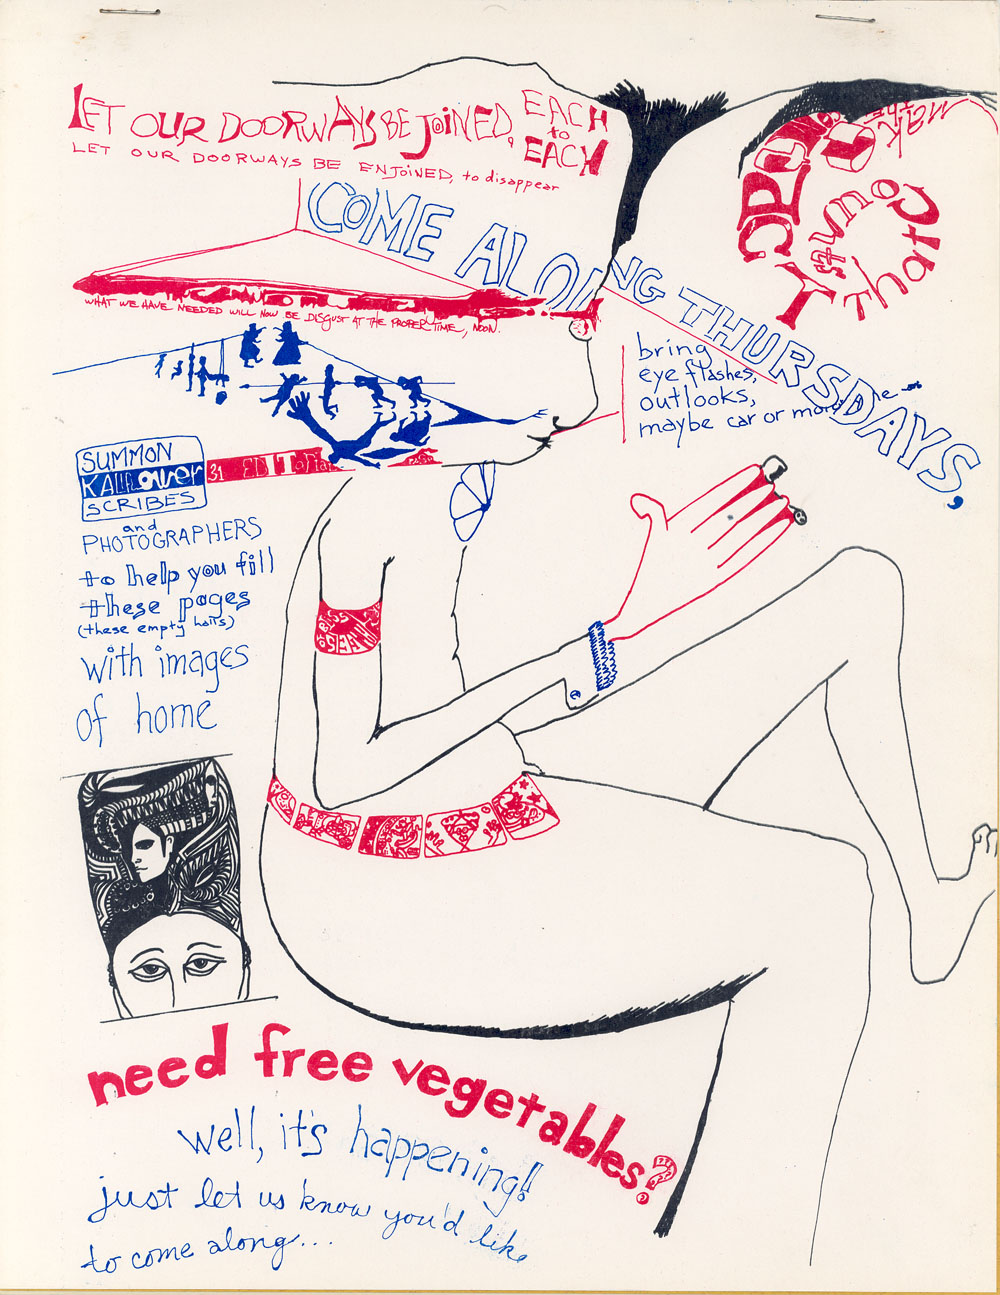 LET OUR DOORWAYS BE JOINED, EACH
to
EACH
LET OUR DOORWAYS BE ENJOINED, to disappear
COME ALONG THURSDAYS,
WHAT WE HAVE NEEDED WILL NOW BE DISGUST AT THE PROPER TIME, NOON.
bring
eye flashes,
outlooks,
maybe car or more
SUMMON
KALIFLOWER
SCRIBES
and
PHOTOGRAPHERS
to help you fill
these pages
(these empty halls)
with images
of home
need free vegetables?
well, it's happening!!
just let us know you'd like
to come along...